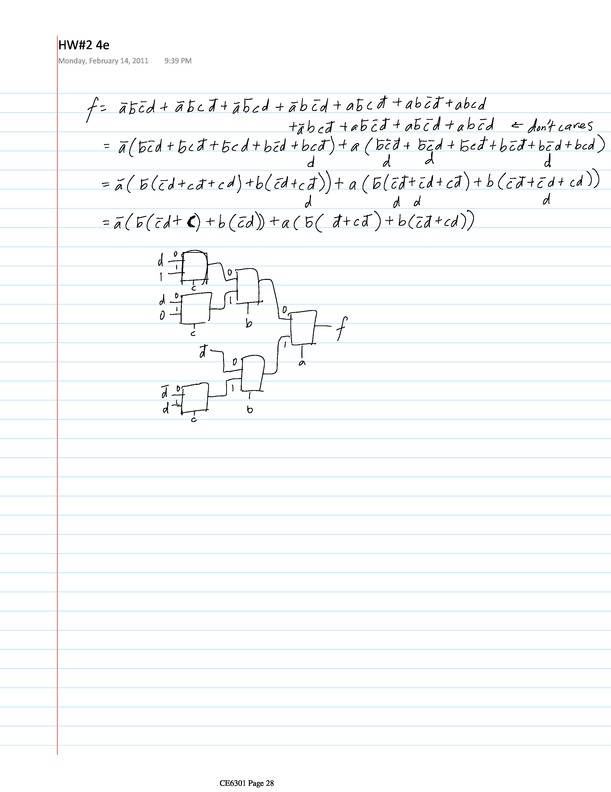 HW#2 4e
Monday, February 14, 2011 9:39 PM
f = a̅b̅c̅d + a̅b̅cd̅ + a̅b̅cd + a̅bc̅d + ab̅cd̅ + abc̅d̅ + abcd
+ a̅bcd̅ + ab̅c̅d̅ + ab̅c̅d + abc̅d ← don't cares
= a̅(b̅c̅d + b̅cd̅ + b̅cd + bc̅d + bcd̅) + a(b̅c̅d̅ + b̅c̅d + b̅cd̅ + bc̅d̅ + bc̅d + bcd)
d d d d
= a̅(b̅(c̅d + cd̅ + cd) + b(c̅d + cd̅)) + a(b̅(c̅d̅ + c̅d + cd̅) + b(c̅d̅ + c̅d + cd))
d d d d
= a̅(b̅(c̅d + c) + b(c̅d)) + a(b̅( d̅ + cd̅) + b(c̅d̅ + cd))
d 0
1 1
c
0
1
b
d 0
0 1
c
0
1
a
f
d̅
0
1
b
d̅ 0
d 1
c
CE6301 Page 28